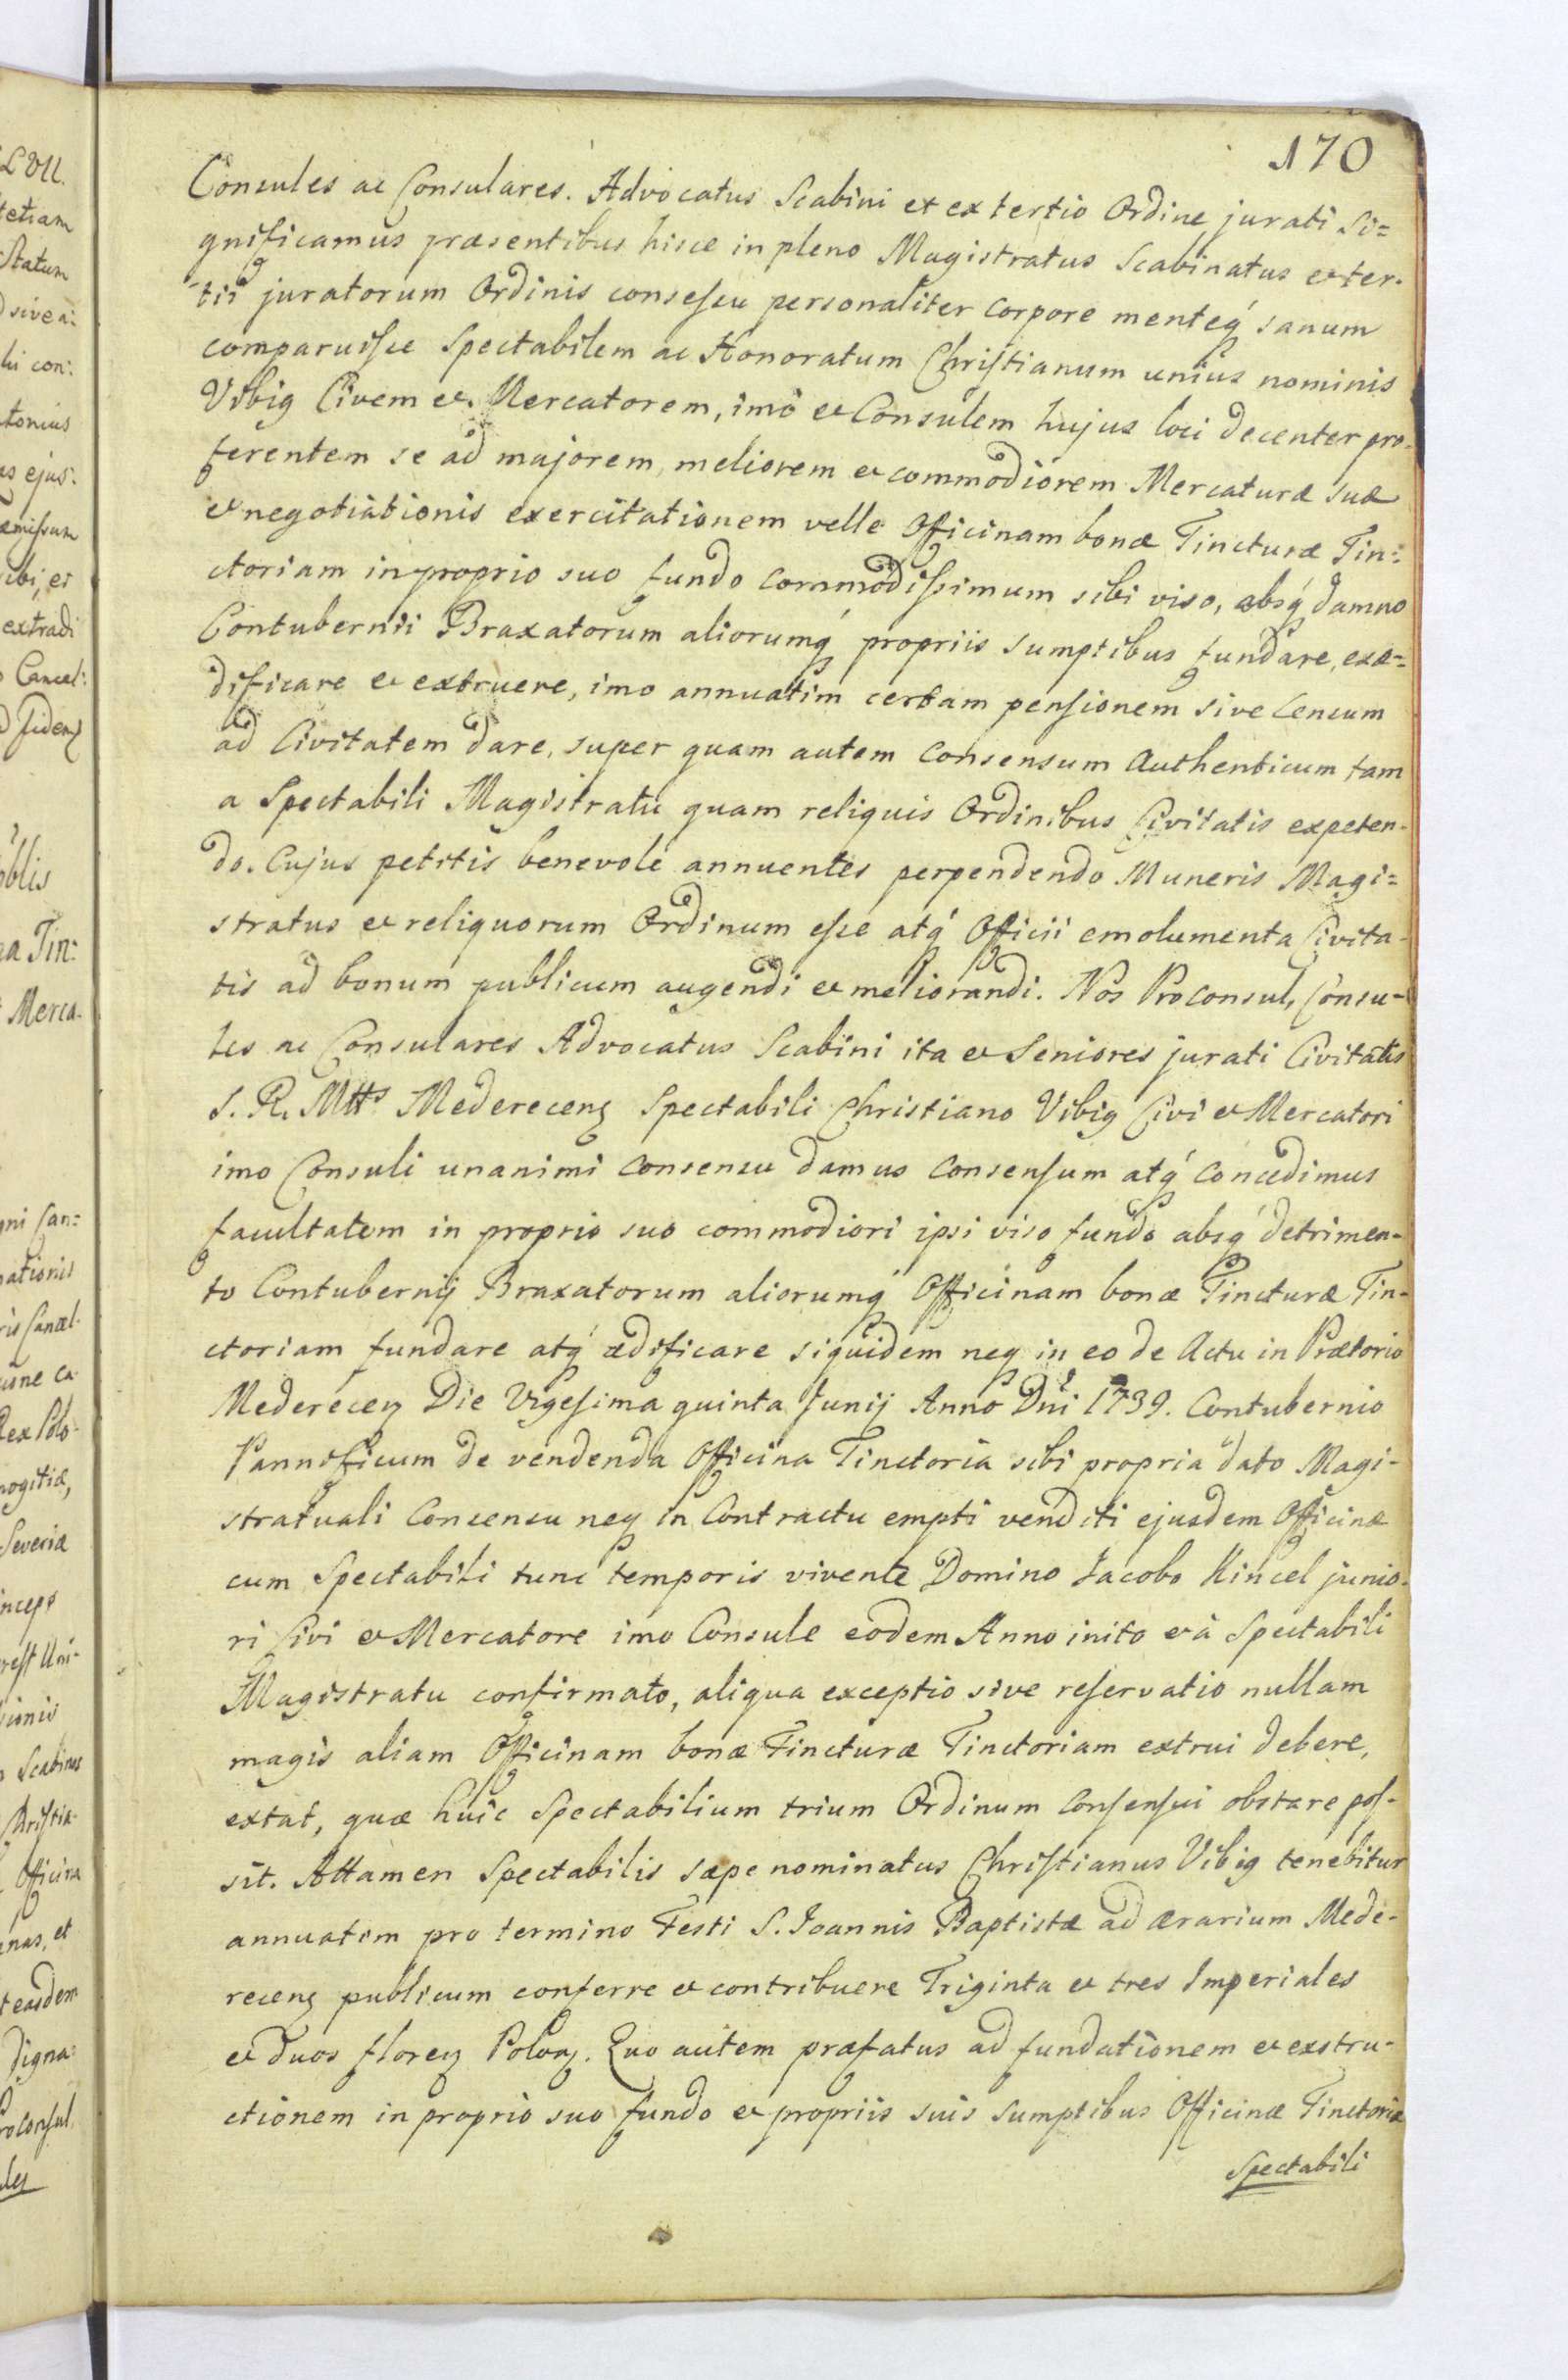 170
Consules ac Consulares. Advocatus Scabini et ex tertio Ordine jurati Si=
gnificamus præsentibus hisce in pleno Magistratus Scabinatus et ter-
tii juratorum Ordinis consessu personaliter corpore menteq́ sanum
comparuisse Spectabilem ac Honoratum Christianum unius nominis
Vibig Civem et Mercatorem, imò et Consulem hujus loci decenter pro-
ferentem se ad majorem, meliorem et commodiorem Mercaturæ suæ
et negotiationis exercitationem velle Officinam bonæ Tincturæ Tin=
ctoriam in proprio suo fundo commodissimum sibi viso, absq́ damno
Contubernii Braxatorum aliorumq́ propriis sumptibus fundare, exæ=
dificare et extruere, imo annuatim certam pensionem sive Censum
ad Civitatem dare, super quam autem Consensum Authenticum tam
a Spectabili Magistratu quam reliquis Ordinibus Civitatis expeten-
do. Cujus petitis benevole annuentes perpendendo Muneris Magi=
stratus et reliquorum Ordinum esse atq́ Officii emolumenta Civita-
tis ad bonum publicum augendi et meliorandi. Nos Proconsul, Consu-
les ac Consulares Advocatus Scabini ita et Seniores jurati Civitatis
S. R. Mtts Medereceng Spectabili Christiano Vibig Civi et Mercatori
imo Consuli unanimi consensu damus consensum atq́ concedimus
facultatem in proprio suo commodiori ipsi viso fundo absq́ detrimen-
to Contubernij Braxatorum aliorumq́ Officinam bonæ Tincturæ Tin-
ctoriam fundare atq́ ædificare siquidem neq in eo de Actu in Prætorio
Mederecen Die Vigesima quinta Junij Anno Dni 1739. Contubernio
Pannificum de vendenda Officina Tinctoria sibi propria dato Magi-
stratuali Consensu neq in Contractu empti venditi ejusdem Officinæ
cum Spectabili tunc temporis vivente Domino Jacobo Hincel junio-
ri Civi et Mercatore imo Consule eodem Anno inito et à Spectabili
Magistratu confirmato, aliqua exceptio sive reservatio nullam
magis aliam Officinam bonæ Tincturæ Tinctoriam extrui debere,
extat, quæ huic Spectabilium trium Ordinum Consensui obstare pos-
sit. Attamen Spectabilis sæpe nominatus Christianus Vibig tenebitur
annuatim pro termino Festi S. Joannis Baptistæ ad ærarium Mede-
receng publicum conferre et contribuere Triginta et tres Imperiales
et duos floreng Polong. Quo autem præfatus ad fundationem et exstru-
ctionem in proprio suo fundo et propriis suis sumptibus Officinæ Tinctoriæ
Spectabili